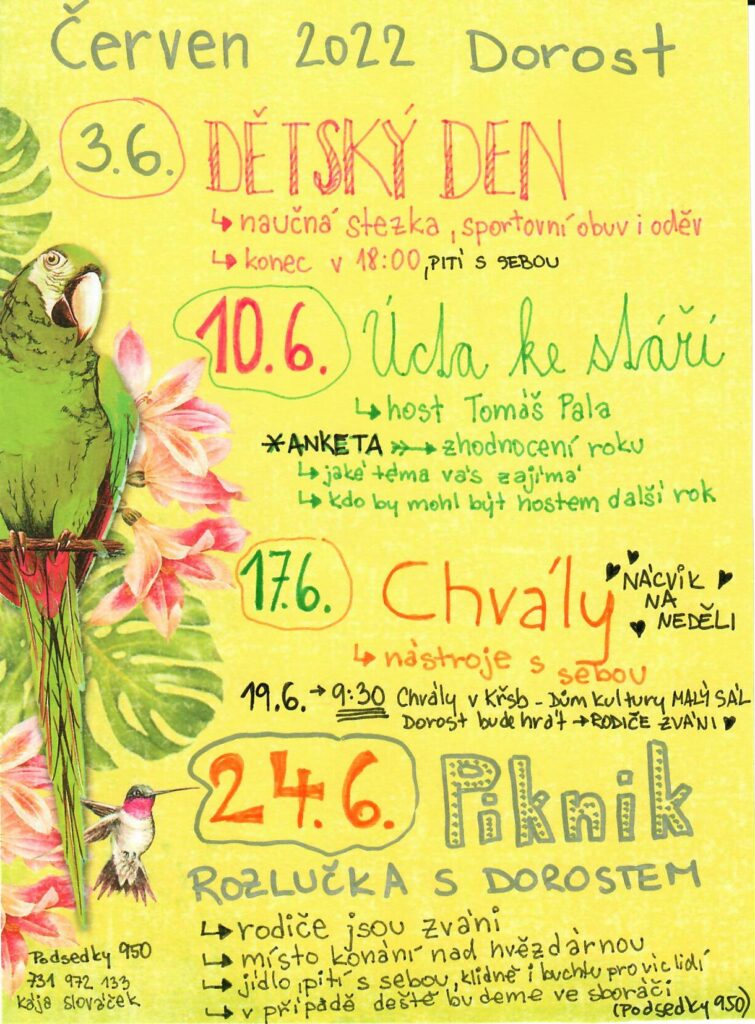 Červen 2022 Dorost
3.6. DĚTSKÝ DEN
↳ naučná stezka, sportovní obuv i oděv
↳ konec v 18:00, PITÍ S SEBOU
10.6. Úcta ke stáří
↳ host Tomáš Pala
*ANKETA →→ zhodnocení roku
↳ jaké téma vás zajímá
↳ kdo by mohl být hostem další rok
17.6. Chvály
NÁCVIK
NA
NEDĚLI
↳ nástroje s sebou
19.6. → 9:30 Chvály v KřSb - DŮM KULTURY MALÝ SÁL
Dorost bude hrát → RODIČE ZVÁNI
24.6. Piknik
ROZLUČKA S DOROSTEM
↳ rodiče jsou zváni
↳ místo konání nad hvězdárnou
↳ jídlo, pití s sebou, klidně i buchtu pro víc lidí
↳ v případě deště budeme ve sboráči
(Podsedky 950)
Podsedky 950
731 972 133
Kája Slováček